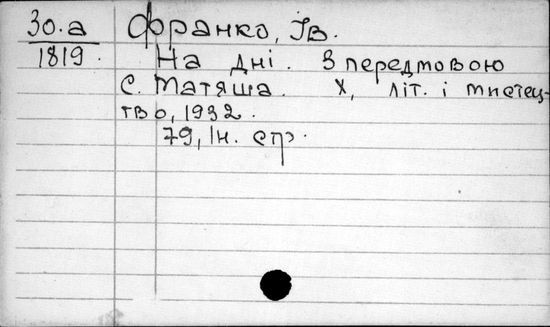 30.a
1819.
Франко, Ів.
На дні. З передмовою
С. Матяша. Х, літ. і мистец-
тво, 1932.
79, Ін. стр.